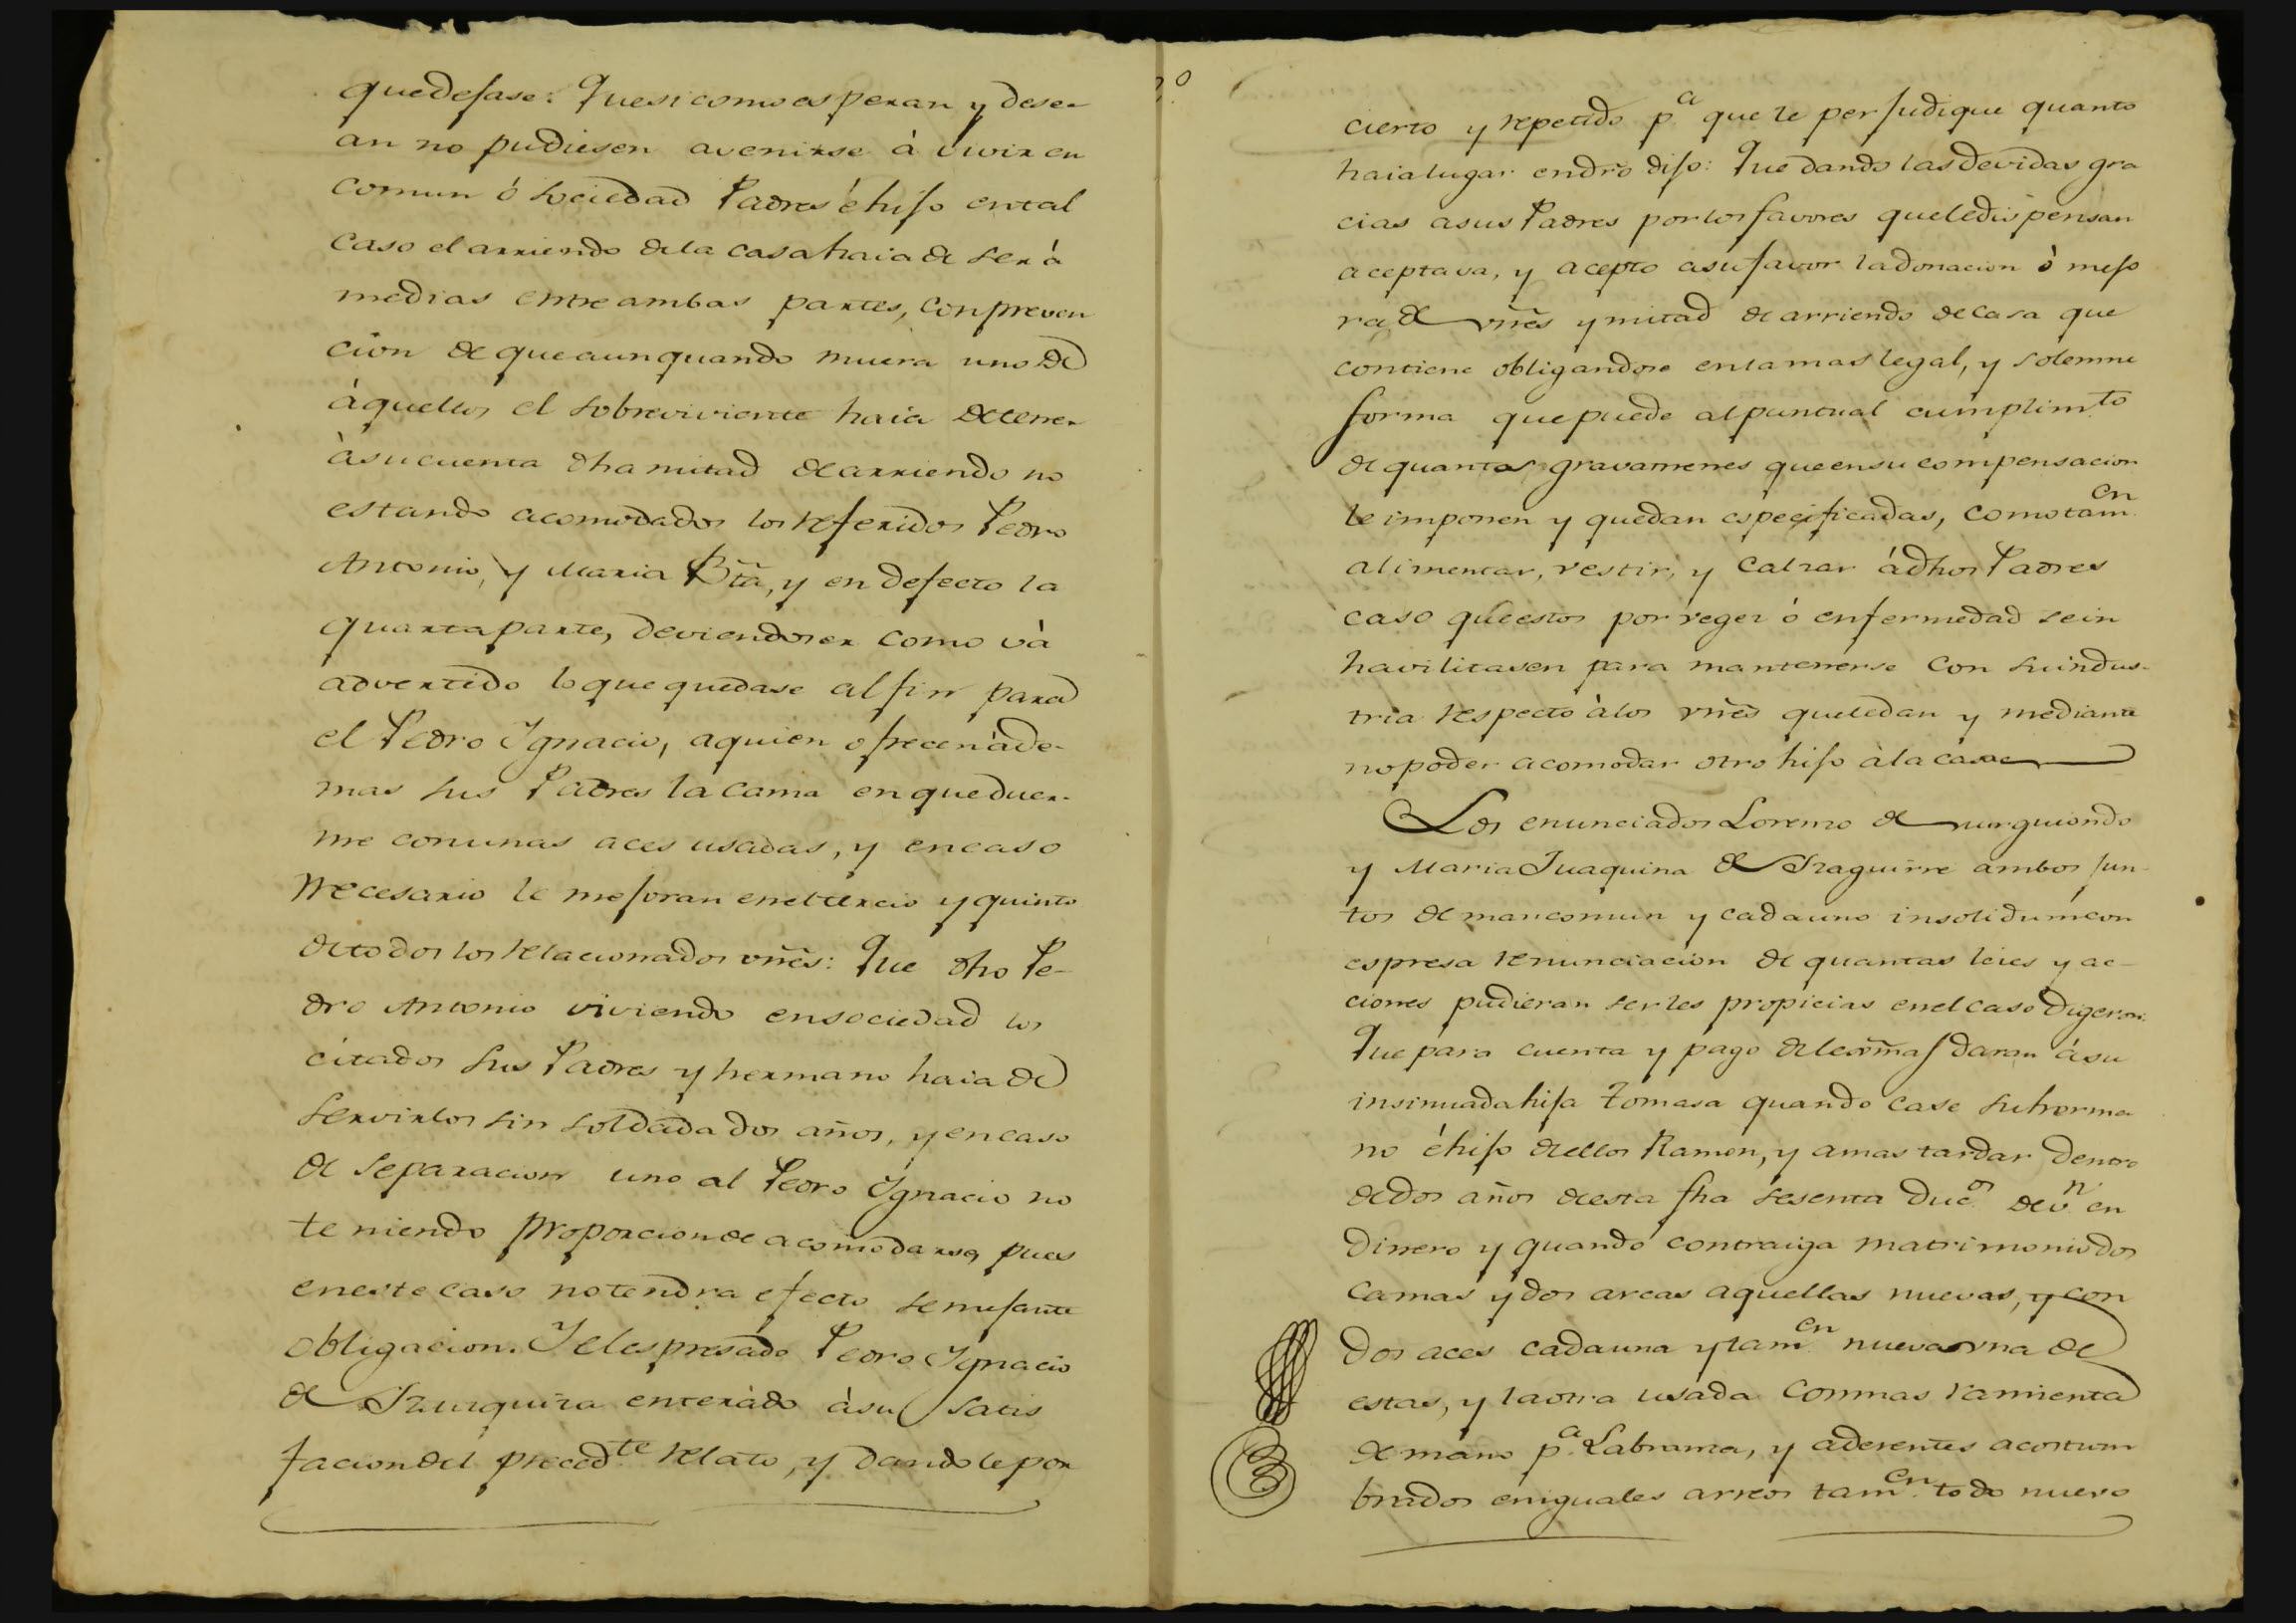 quedejase: Que si como esperan y dese-
an no pudiesen avenirse à vivir en
comun ó sociedad Padres é hijo en tal
caso el arriendo de la casa haia de ser à
medias entre ambas partes, con preven
cion de que aun quando muera uno de
àquellos el sobreviviente haia de tener
à su cuenta dha mitad de arriendo no
estando acomodados los referidos Pedro
Antonio, y Maria Bta, y en defecto la
quarta parte, deviendo ser como và
advertido lo que quedase al fin para
el Pedro Ygnacio, a quien ofrecen àde-
mas sus Padres la cama en que duer-
me con unas aces usadas, y en caso
necesario le mejoran en el tercio y quinto
de todos los relacionados vñes: Que dho Pe-
dro Antonio viviendo en sociedad los
citados sus Padres y hermano haia de
servirlos sin soldada dos años, y en caso
de separacion uno al Pedro Ygnacio no
teniendo proporcion de acomodarse, pues
en este caso no tendra efecto semejante
obligacion. Y el espresado Pedro Ygnacio
de Yzurquiza enterado à su satis
facion del preced.te relato, y dandole por
cierto y repetido p.a que le perjudique quanto
haia lugar en dro dijo: Que dando las devidas gra
cias a sus Padres por los favores que le dispensan
aceptava, y acepto a su favor la donacion ò mejo
ra de vñes y mitad de arriendo de casa que
contiene obligandose en la mas legal, y solemne
forma que puede al puntual cumplim.to
de quantos gravamenes que en su compensacion
le imponen y quedan especificadas, como tam.en
alimentar, vestir, y calzar á dhos Padres
caso que estos por vegez ó enfermedad se in
havilitasen para mantenerse con su indus-
tria respecto à los vñes que le dan y mediante
no poder acomodar otro hijo à la casa
Los enunciados Lorenzo de Murguiondo
y Maria Juaquina de Yzaguirre ambos jun-
tos de mancomun y cada uno insolidum con
espresa renunciacion de quantas leies y ac-
ciones pudieran serles propicias en el caso digeron:
Que para cuenta y pago de lexñas daran à su
insinuada hija Tomasa quando case su herma
no é hijo de ellos Ramon, y a mas tardar dentro
de dos años de esta fha sesenta duc.os de v.n en
dinero y quando contraiga matrimonio dos
camas y dos arcas aquellas nuevas, y con
dos aces cada una y tam.en nueva una de
estas, y la otra usada con mas ramienta
de mano p.a Labranza, y aderentes acostum
brados en iguales arreos tam.en todo nuevo